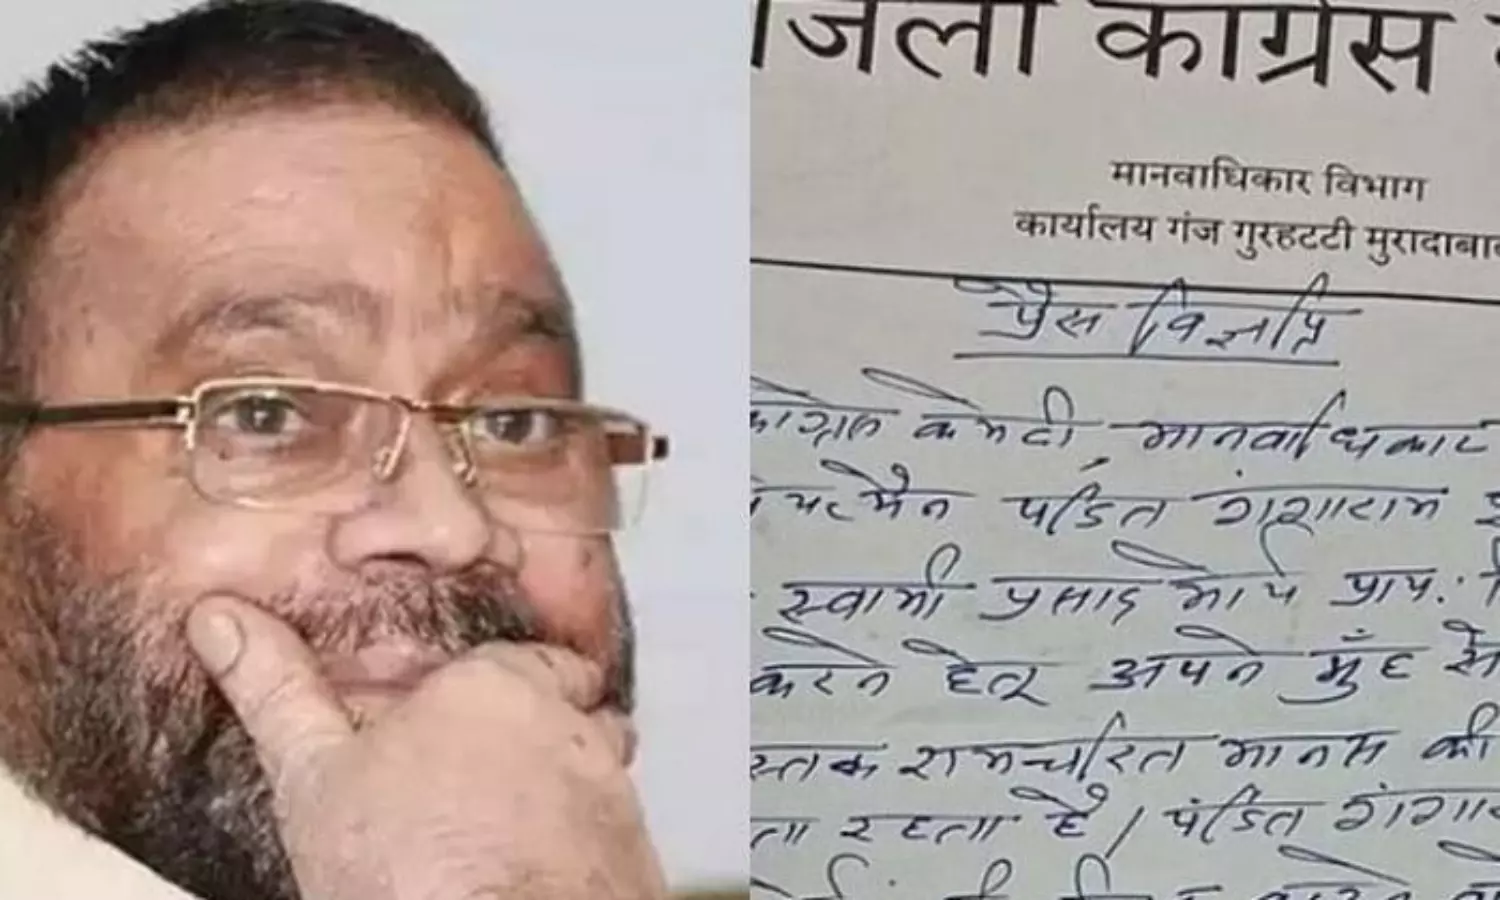 जिला कांग्रेस
मानवाधिकार विभाग
कार्यालय गंज गुरहटटी मुरादाबाद
प्रैस विज्ञप्ति
कांग्रेस कमेटी मानवाधिकार
चेयरमैन पंडित गंगाराम
स्वामी प्रसाद मौर्य प्राय:
करने हेतु अपने मुँह से
पुस्तक रामचरित मानस की
रहता है। पंडित